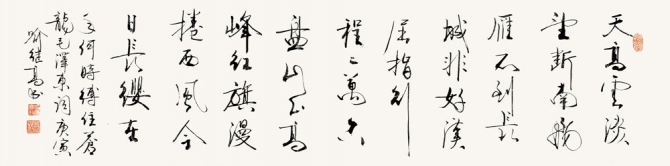 天高雲淡
望斷南飛
雁不到長
城非好漢
屈指行
程二萬六
盤山上高
峰紅旗漫
捲西風今
日長纓在
手何時縛住蒼
龍毛澤東詞庚寅
喻继高書